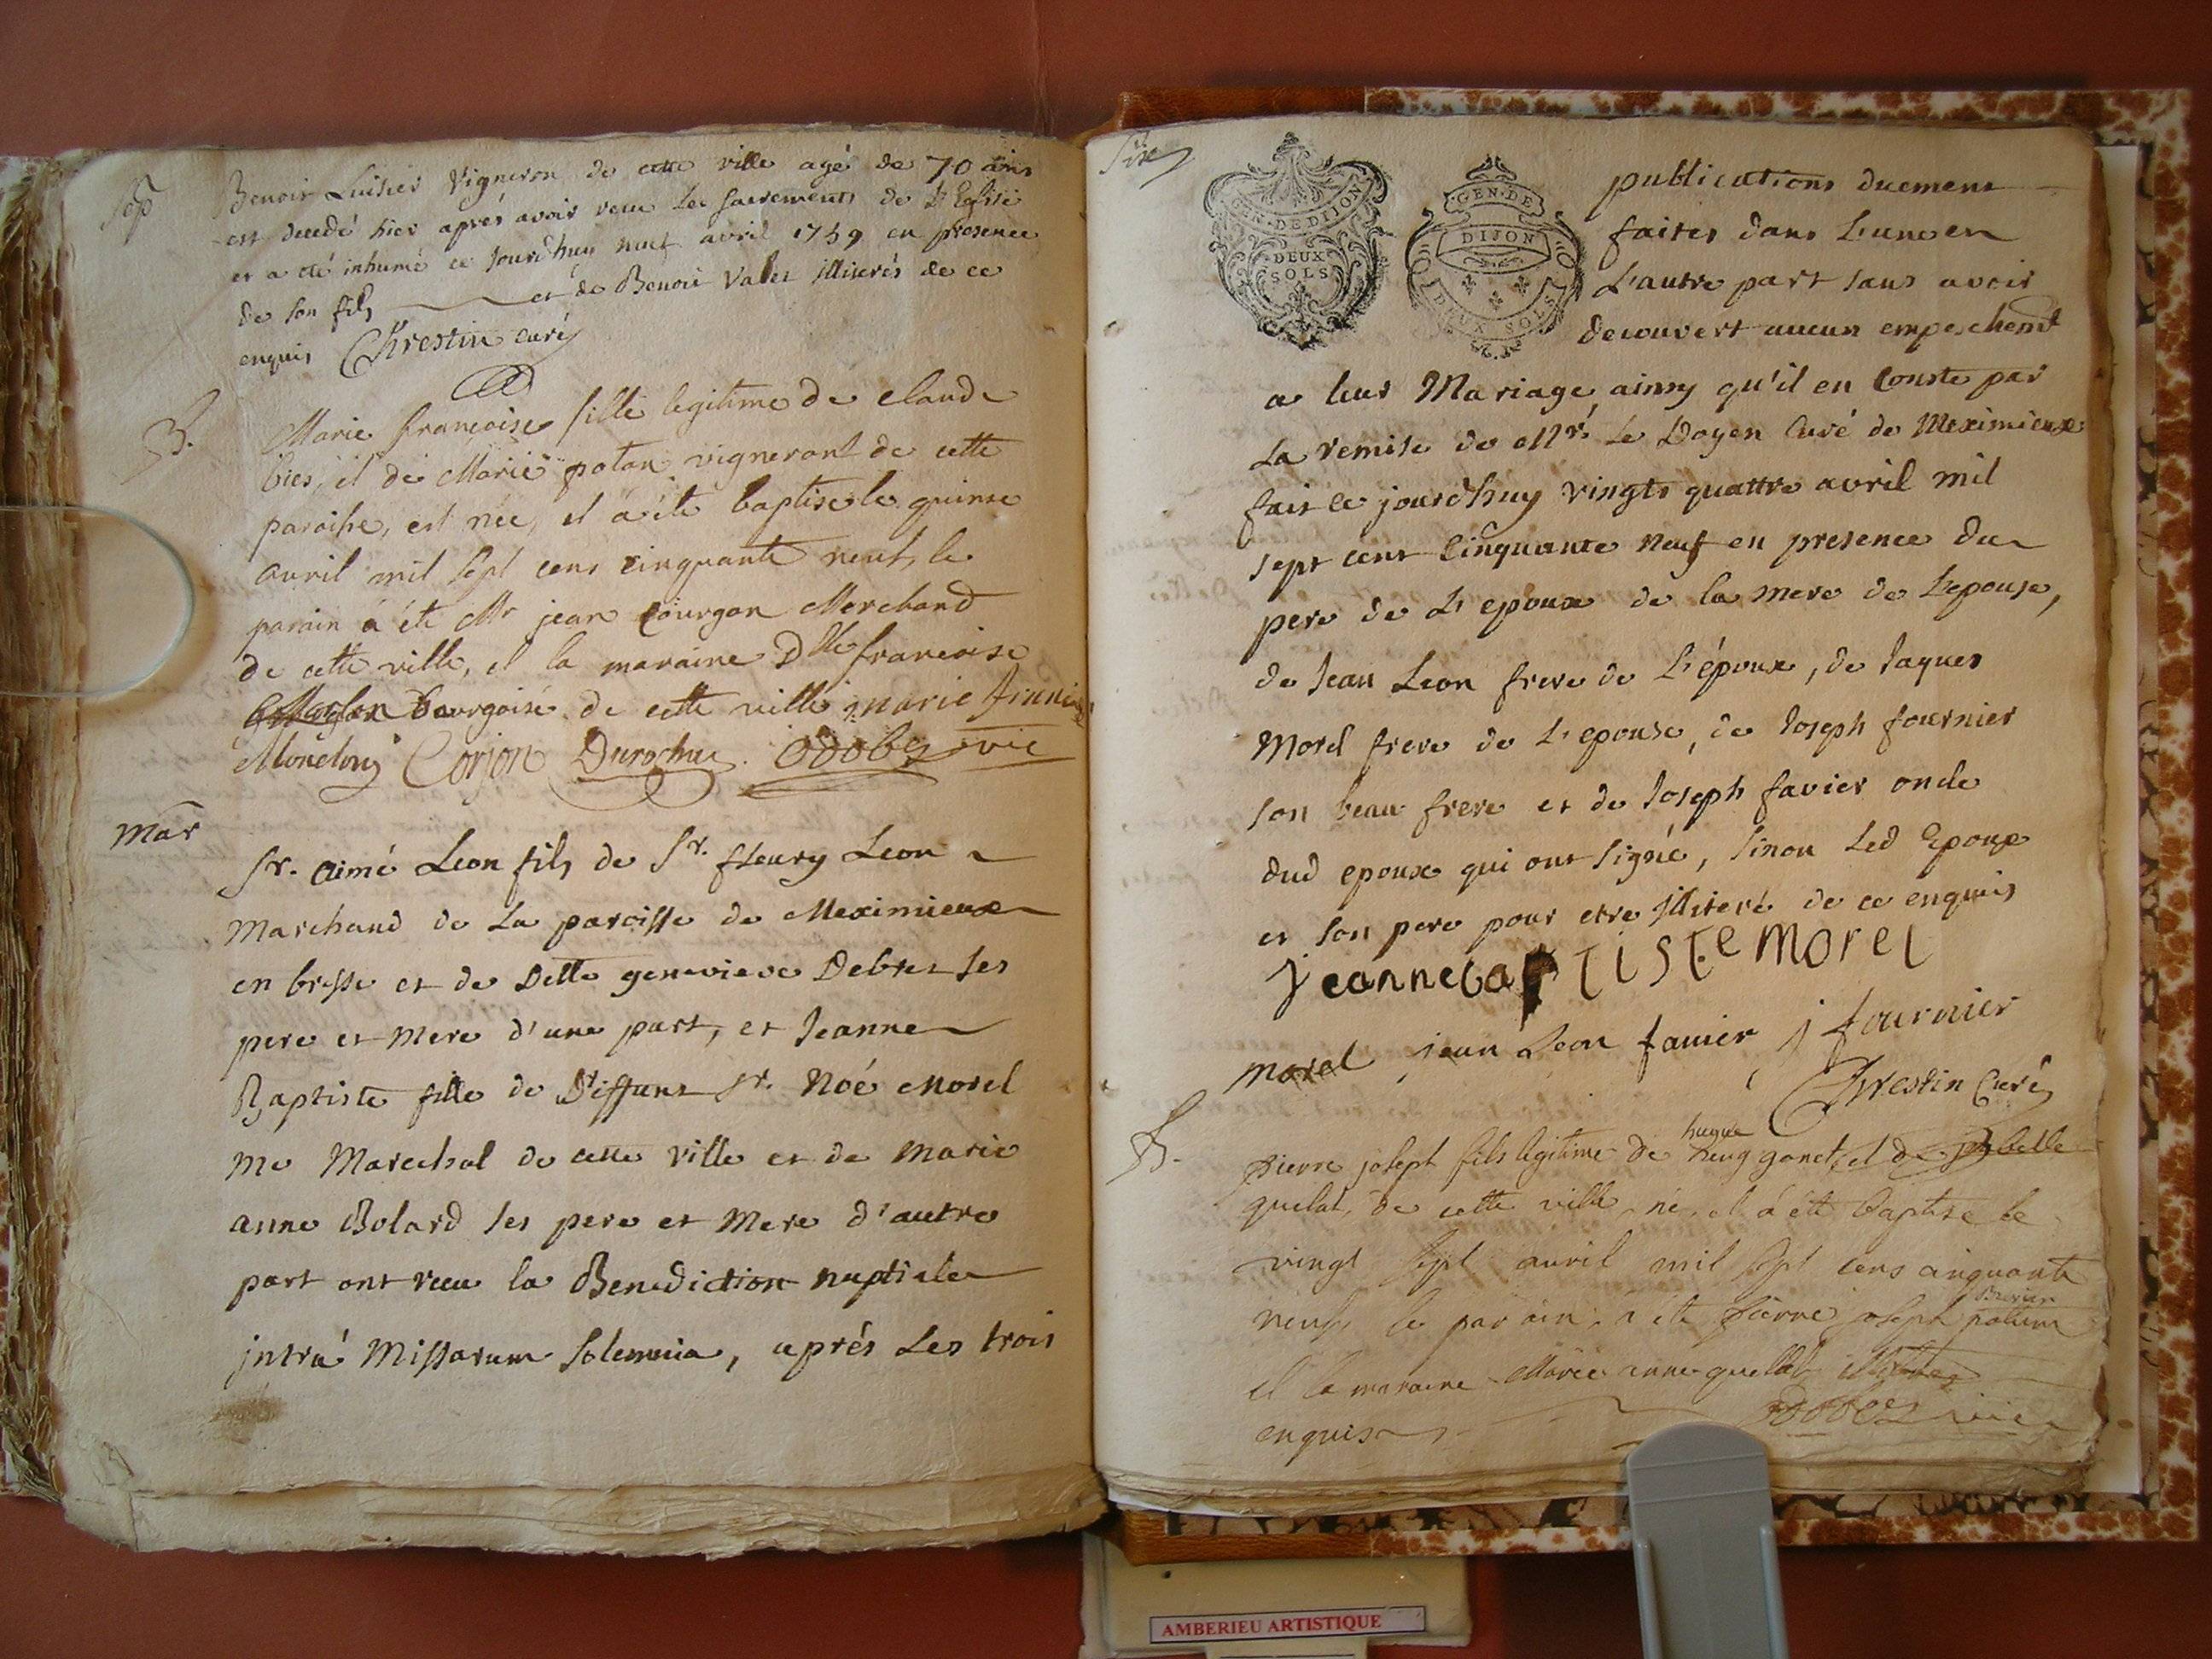 Sep
Benoit Luisier Vigneron de cette ville agé de 70 ans
est decedé hier aprés avoir receu les sacrements de L'Eglise
et a eté inhumé ce jourd'huy neuf avril 1759 en presence
de son fils et de Benoit Valet illiterés de ce
enquis Chrestin curé
B.
Marie françoise fille legitime de claude
bies, et de Marie potan vigneront de cette
paroisse, est née, et a été baptisé le quinse
avril mil sept cens cinquante neuf, le
parain a été Mr jean Courgon Merchand
de cette ville, et la maraine Dlle francoise
bourgoise de cette ville marie
Corjon Durochat Odobez vic
Mar
Sr. aimé Leon fils de Sr. fleury Leon
Marchand de La paroisse de Meximieux
en bresse et de Delle genevieve Debres ses
pere et Mere d'une part, et Jeanne
Baptiste fille de Deffunt Sr. Noé Morel
Me Marechal de cette Ville et de Marie
anne Bolard ses pere et Mere d'autre
part ont receu la Benediction nuptiale
jntra Missarum solemnia, aprés Les trois
Six
GEN. DE DIJON
DEUX
SOLS
GEN. DE
DIJON
DEUX SOLS
publications duement
faites dans L'une en
L'autre part sans avoir
decouvert aucun empechemt
a leur Mariage, ainsy qu'il en Conste par
La remise de Mr. Le Doyen Curé de Meximieux
fait ce jourd'huy vingts quattre avril mil
sept cent Cinquante neuf en presence du
pere de L'epoux de la mere de L'epouse,
de Jean Leon frere de L'époux, de Jaques
Morel frere de L'epouse, de Joseph fournier
son beau frere et de Joseph favier oncle
dud epoux qui ont signé, sinon Led Epoux
et son pere pour etre illiteré de ce enquis
jeannebaptiste morel
morel jean Leon favier j fournier
Chrestin Curé
B.
hugue
pierre josept fils legitime de heug ganet, et de ysabelle
quelat, de cette ville, né, et a été Baptisé le
vingt sept avril mil sept cens cinquante
neuf, le parain a été pierre joseph
et la maraine Marie anne quellat
enquis Odobez vic
AMBERIEU ARTISTIQUE